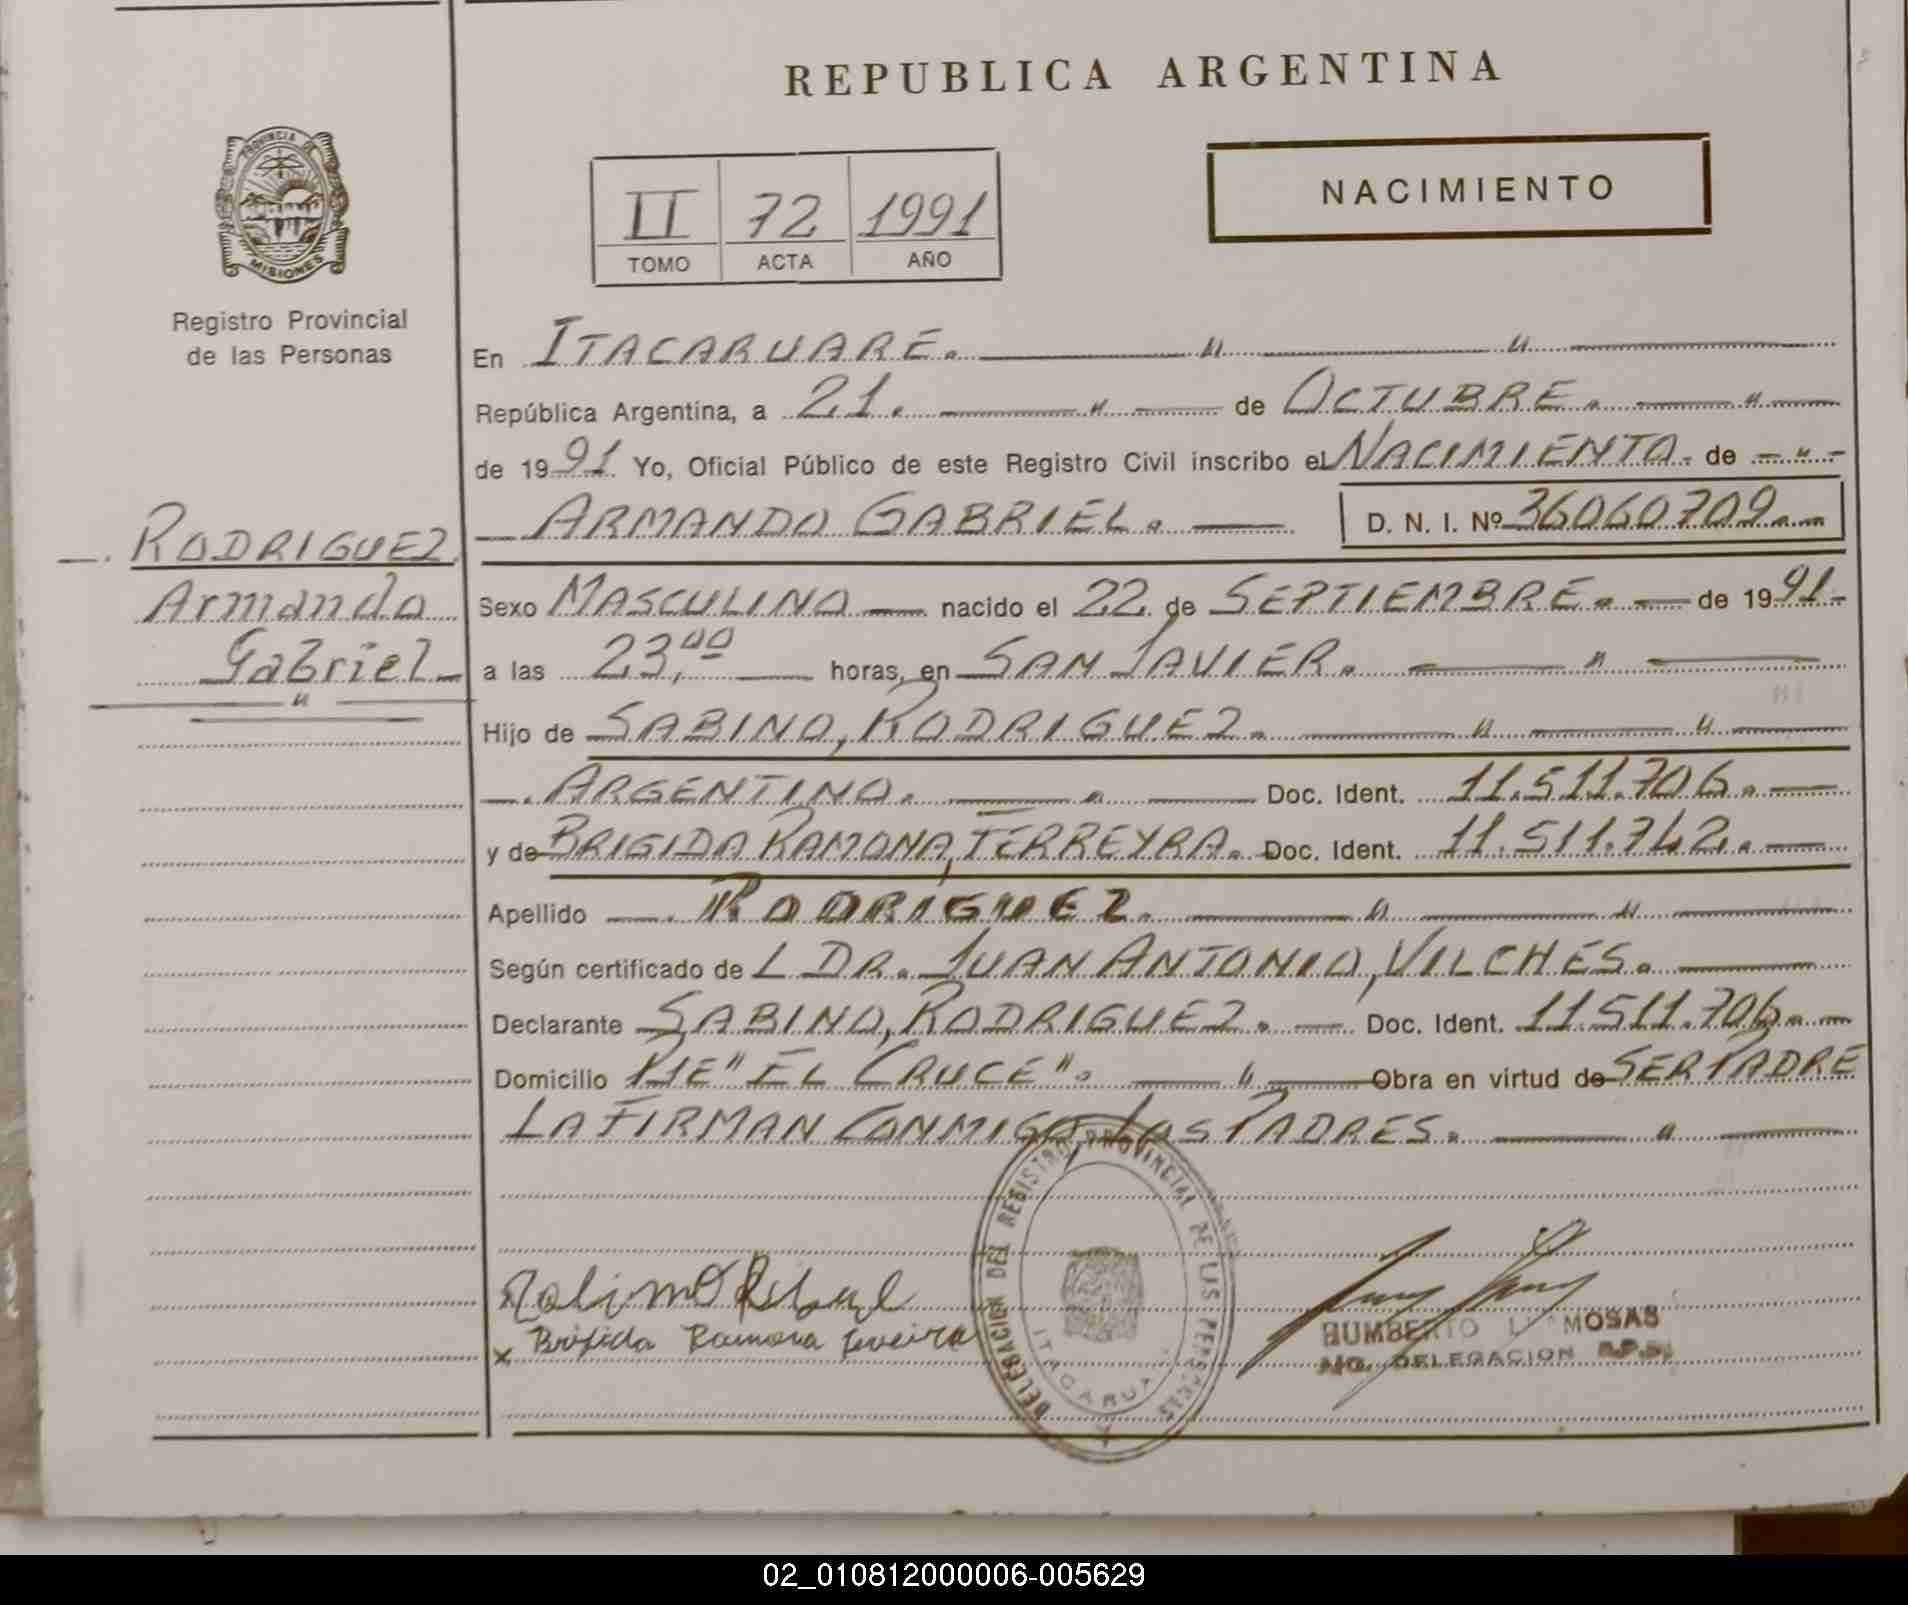 REPUBLICA ARGENTINA
PROVINCIA DE
MISIONES
Registro Provincial
de las Personas
II 72 1991
TOMO ACTA AÑO
NACIMIENTO
En ITACARUARE. " "
República Argentina, a 21. " de OCTUBRE. "
de 1991 Yo, Oficial Público de este Registro Civil inscribo el NACIMIENTO. de "
ARMANDO GABRIEL. D. N. I. Nº 36060709.
RODRIGUEZ.
Armando
Gabriel
"
Sexo MASCULINO nacido el 22 de SEPTIEMBRE. de 1991.
a las 23,00 horas, en SAN JAVIER. "
Hijo de SABINO, RODRIGUEZ. " "
ARGENTINO. " Doc. Ident. 11.511.706.
y de BRIGIDA RAMONA, FERREYRA. Doc. Ident. 11.511.742.
Apellido RODRIGUEZ. " "
Según certificado de L DR. JUAN ANTONIO, VILCHES.
Declarante SABINO, RODRIGUEZ. Doc. Ident. 11.511.706.
Domicilio PJE "EL CRUCE". " Obra en virtud de SER PADRE
LA FIRMAN CONMIGO, LOS PADRES. "
DELEGACION DEL REGISTRO PROVINCIAL DE LAS PERSONAS
x Brijida Ramona
HUMBERTO
DELEGACION R.P.P.
02_010812000006-005629